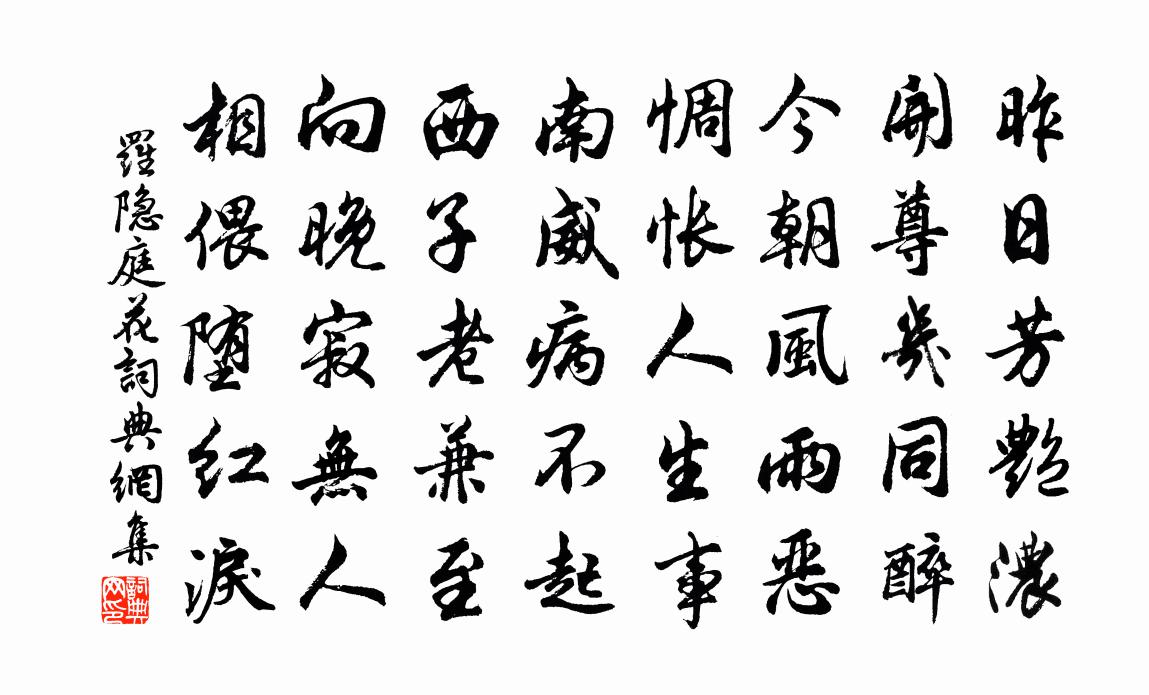 昨日芳艷濃
開尊幾同醉
今朝風雨惡
惆悵人生事
南威病不起
西子老兼至
向晚寂無人
相偎堕红淚
羅隐庭花詞典網集
詞典网印